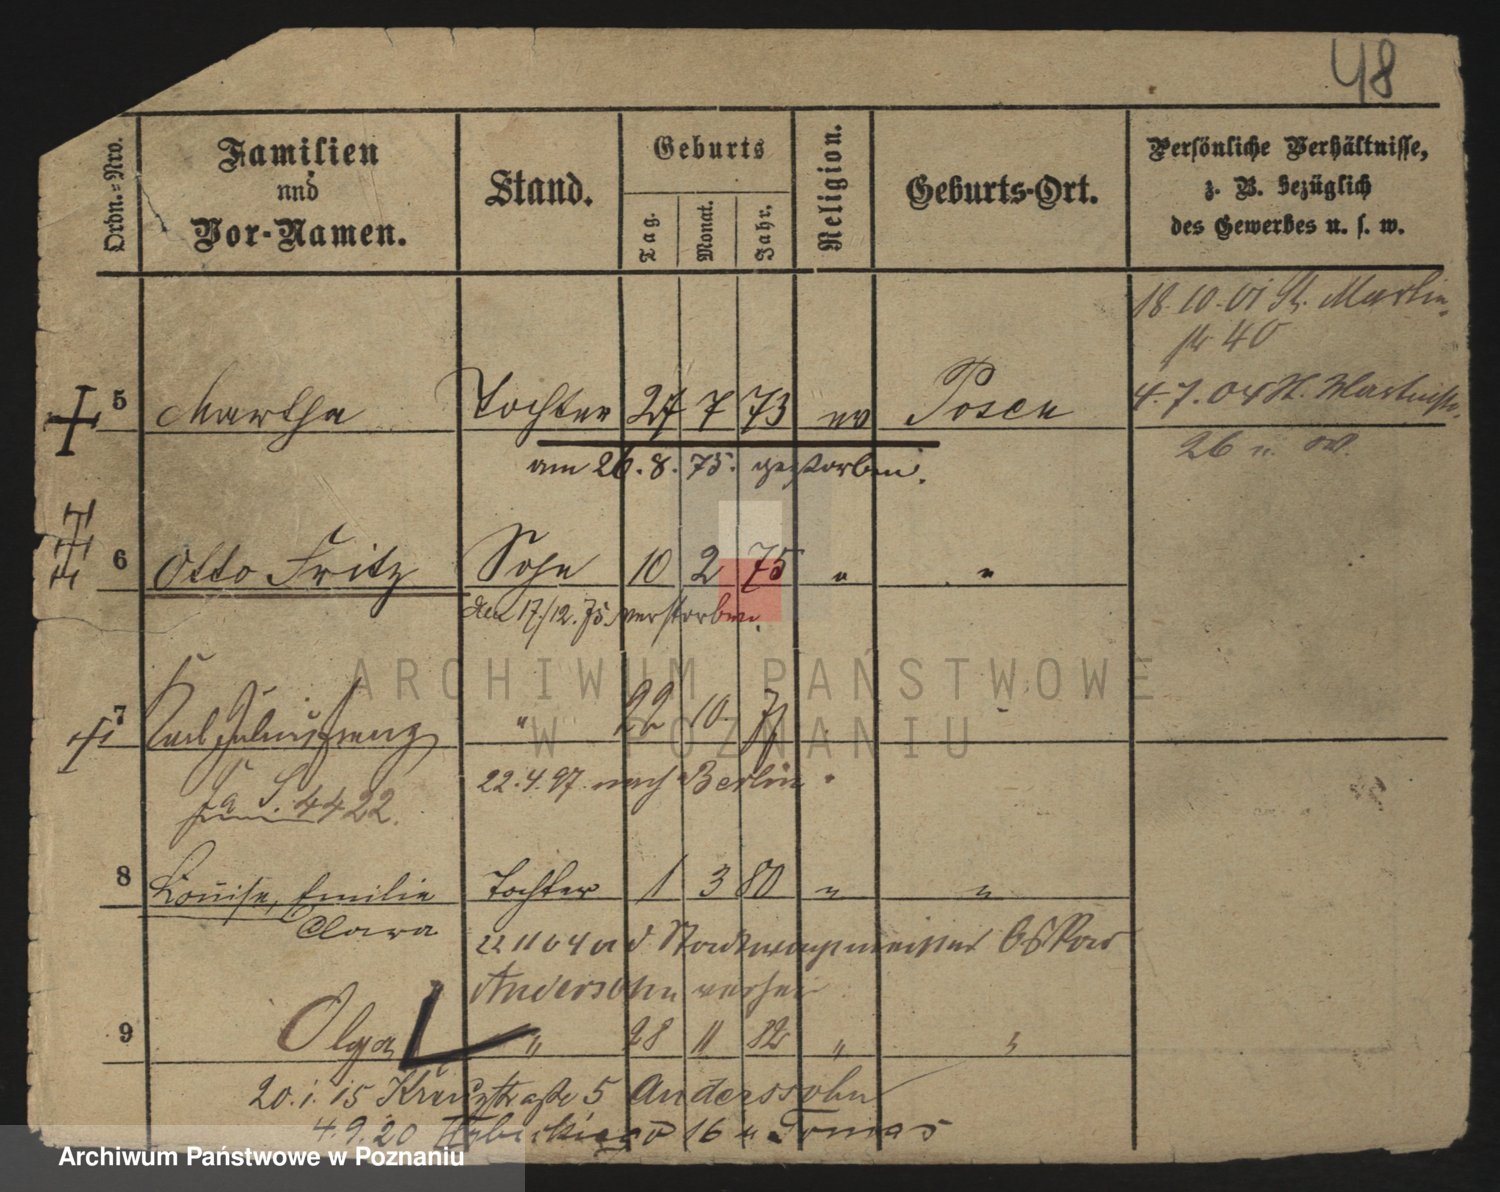 48
Ordn.-Nro.
Familien
und
Vor-Namen.
Stand.
Geburts
Tag.
Monat.
Jahr.
Religion.
Geburts-Ort.
Persönliche Verhältnisse,
z. B. bezüglich
des Gewerbes u. s. w.
18.10.01 St. Martin
str 40
5 Martha Tochter 27 7 73 ev Posen
4.7.04 St. Martinstr.
26 u. sw.
am 26.8.75. gestorben.
6 Otto Fritz Sohn 10 2 75 " "
den 17./12.75. verstorben.
7 Karl Julius Franz " 22 10 77
22.4.97. nach Berlin.
S. 4422.
8 Louise, Emilie Tochter 1 3 80 " "
Clara
22 11 04 a d Oskar
Andersohn verhei
9 Olga " 28 11 82 " "
20.1.15 Kreuzstraße 5 Anderssohn
4.9.20 16 u Tomas
ARCHIWUM PAŃSTWOWE
W POZNANIU
Archiwum Państwowe w Poznaniu